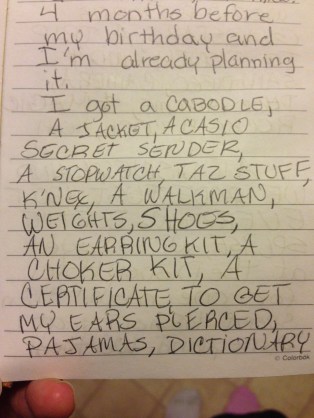 4 months before
my birthday and
I'm already planning
it.
I got a CABODLE,
A JACKET, A CASIO
SECRET SENDER,
A STOPWATCH, TAZ STUFF,
K'NEX, A WALKMAN,
WEIGHTS, SHOES,
AN EARRING KIT, A
CHOKER KIT, A
CERTIFICATE TO GET
MY EARS PIERCED,
PAJAMAS, DICTIONARY
© Colorbok